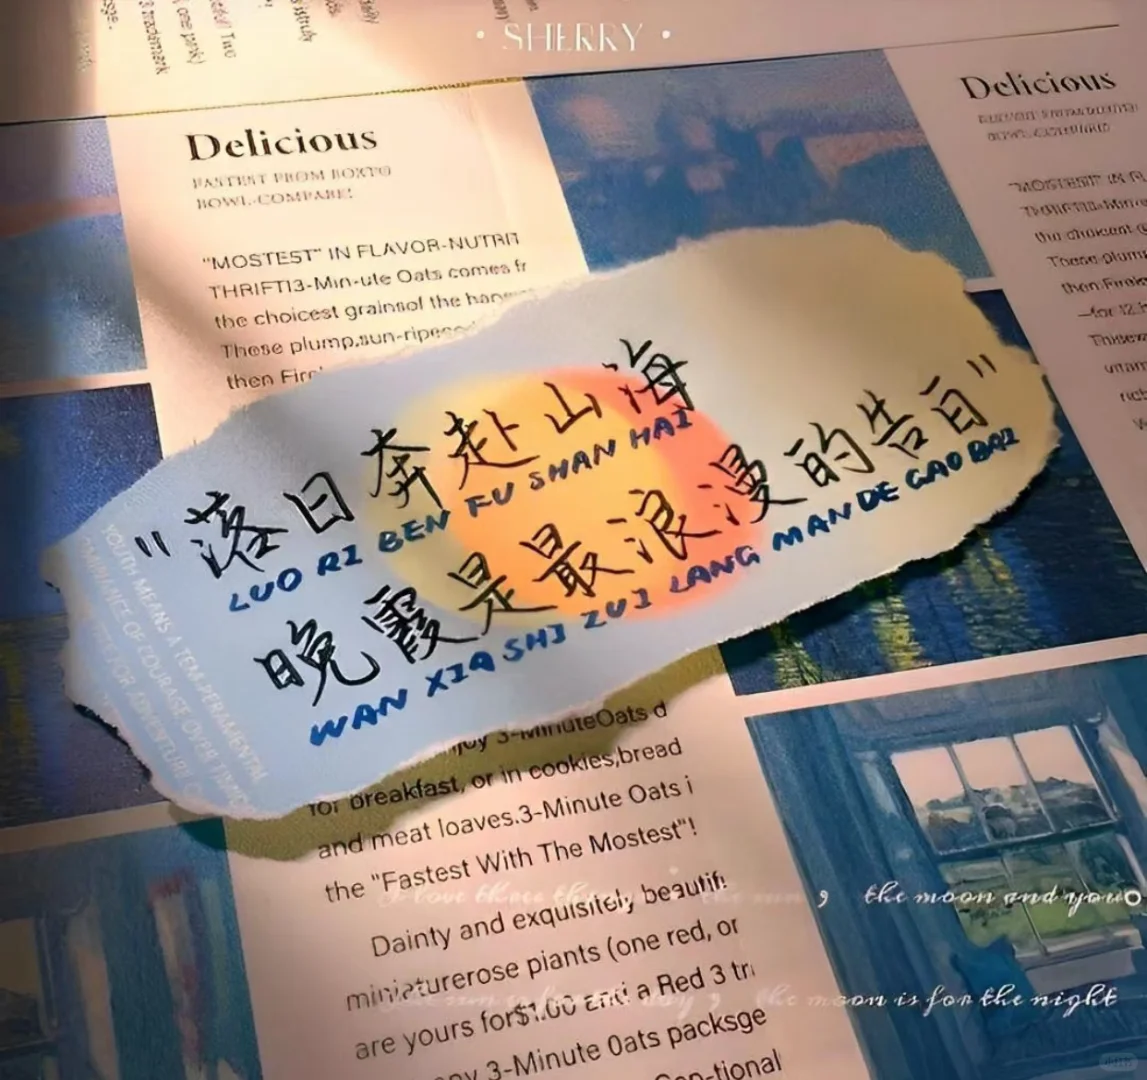 SHERRY
Delicious
FASTEST FROM BOXTO
BOWL-COMPARE!
"MOSTEST" IN FLAVOR-NUTRIT
THRIFTI3-Min-ute Oats comes fr
the choicest grainsof the
These plump,sun-ripene
then
"落日奔赴山海
LUO RI BEN FU SHAN HAI
晚霞是最浪漫的告白"
WAN XIA SHI ZUI LANG MAN DE GAO BAI
YOUTH MEANS A TEMPERAMENTAL
OMINANCE OF COURAGE OVER TIMID
njoy 3-MinuteOats d
for breakfast, or in cookies,bread
and meat loaves.3-Minute Oats i
the "Fastest With The Mostest"!
Dainty and exquisitely beautifu
miniaturerose plants (one red, or
are yours for$1.00 and a Red 3 tr
ny 3-Minute Oats packsge
tional
Delicious
"MOSTEST" IN FL
THRIFTI3-Min-u
the choicest g
These plump
then
—for 12 h
vitam
I love three things in the sun, the moon and you。
the sun is for the day, the moon is for the night